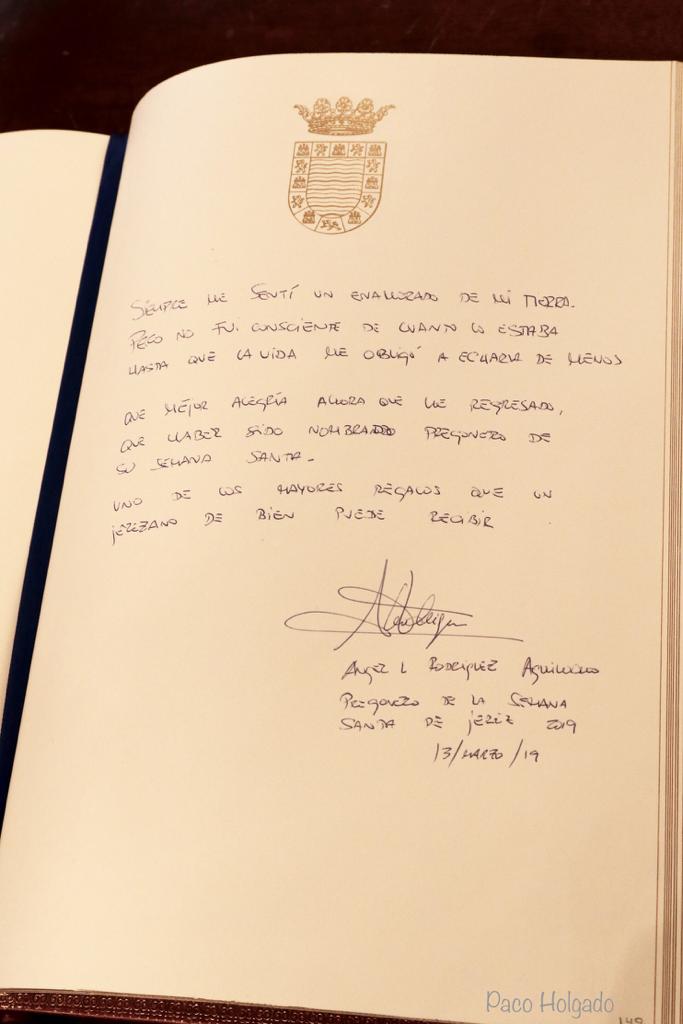 SIEMPRE ME SENTÍ UN ENAMORADO DE MI TIERRA.
PERO NO FUI CONSCIENTE DE CUANTO LO ESTABA
HASTA QUE LA VIDA ME OBLIGÓ A ECHARLA DE MENOS
QUE MEJOR ALEGRÍA AHORA QUE HE REGRESADO,
QUE HABER SIDO NOMBRADO PREGONERO DE
SU SEMANA SANTA.
UNO DE LOS MAYORES REGALOS QUE UN
JEREZANO DE BIEN PUEDE RECIBIR
ANGEL L RODRIGUEZ
PREGONERO DE LA SEMANA
SANTA DE JEREZ 2019
13/MARZO/19
Paco Holgado